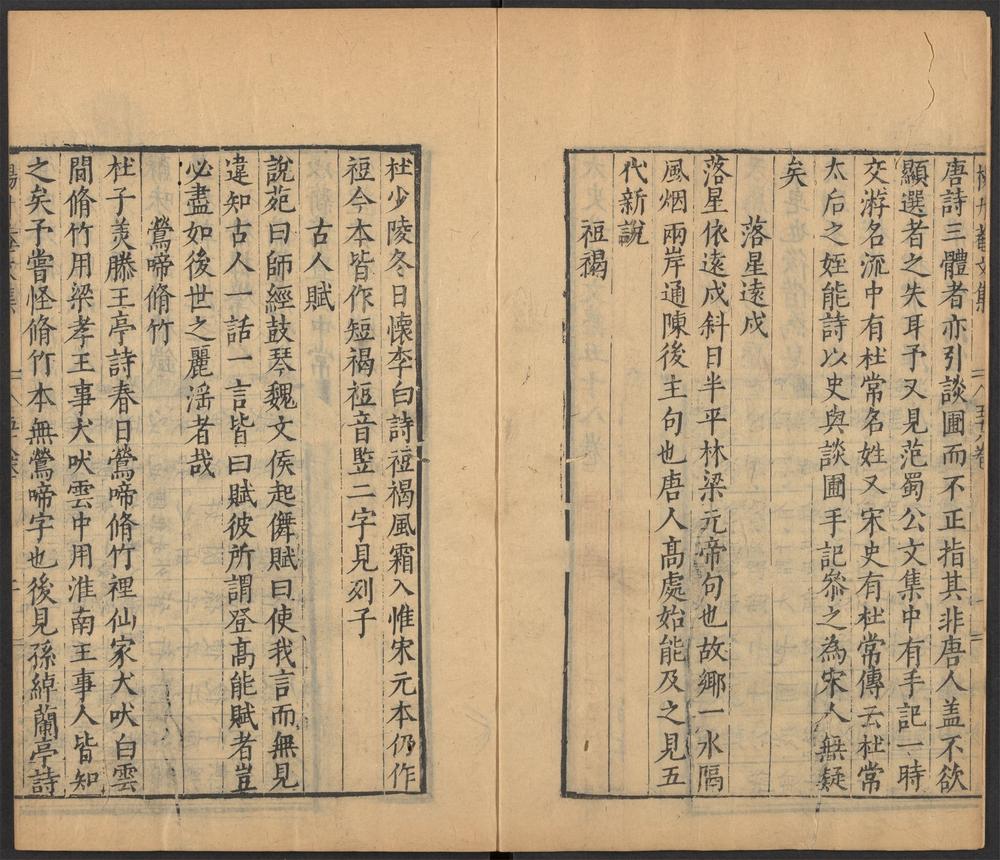 唐詩三體者亦引談圃而不正指其非唐人盖不欲
顯選者之失耳予又見范蜀公文集中有手記一時
交游名流中有杜常名姓又宋史有杜常傳云杜常
太后之姪能詩以史與談圃手記叅之為宋人無疑
矣
落星遠戍
落星依遠戍斜日半平林梁元帝句也故鄉一水隔
風烟兩岸通陳後主句也唐人髙處始能及之見五
代新說
裋褐
杜少陵冬日懷李白詩裋褐風霜入惟宋元本仍作
裋今本皆作短褐裋音竪二字見列子
古人賦
說苑曰師經鼓琴魏文侯起儛賦曰使我言而無見
違知古人一話一言皆曰賦彼所謂登髙能賦者豈
必盡如後世之麗淫者哉
鶯啼脩竹
杜子美滕王亭詩春日鶯啼脩竹裡仙家犬吠白雲
間脩竹用梁孝王事犬吠雲中用淮南王事人皆知
之矣予嘗怪脩竹本無鶯啼字也後見孫綽蘭亭詩